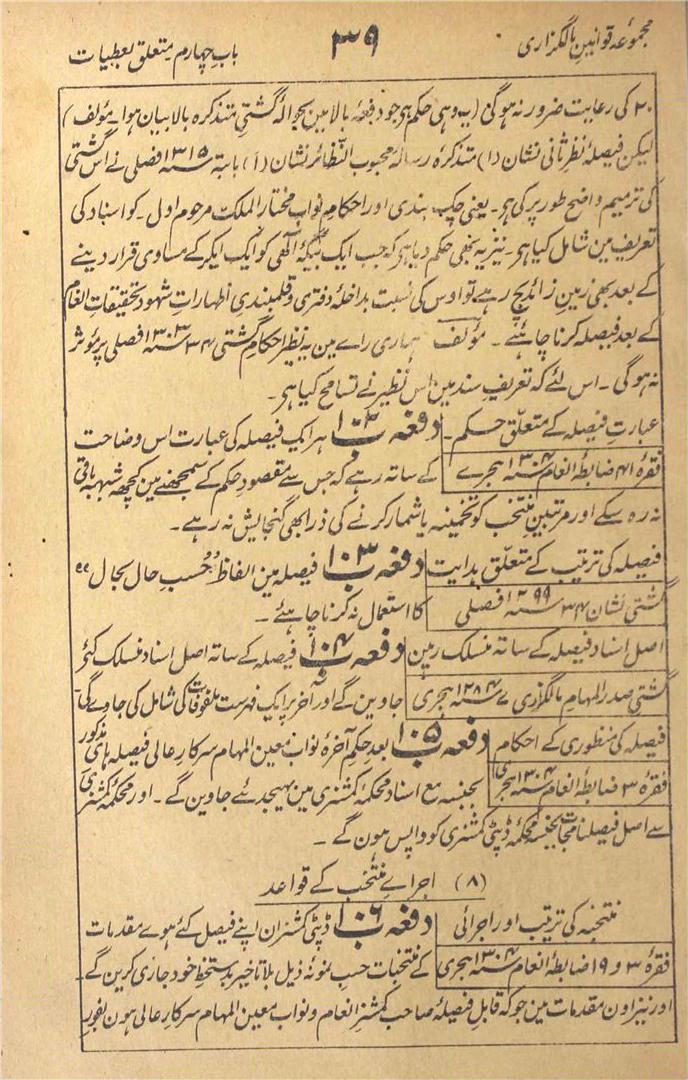 مجموعۂ قوانین مالگذاری
۳۹
باب چہارم متعلق بعطیات
۲۰ کی رعایت ضرور نہ ہوگی (یہ وہی حکم ہی جو دفعۂ بالا مین بحوالۂ گشتی متذکرہ بالا بیان ہوا۔ مؤلف)
لیکن فیصلۂ نظر ثانی نشان (۱) متذکرہ رسالۂ محبوب النظائر نشان (۱) بابتہ ۱۳۱۵ سنہ فصلی نے اس گشتی
کی ترمیم واضح طور پر کی ہی۔ یعنی چک بندی اور احکام نواب مختار الملک مرحوم اول۔ کو اسناد کی
تعریف مین شامل کیا ہی۔ نیز یہ بھی حکم دیا ہی کہ جب ایک بیگہ آلٰھی کو ایک ایکر کے مساوی قرار دینے
کے بعد بھی زمین زائد بچ رہے تو اوس کی نسبت بداخلۂ دفتری و قلمبندی اظہارات شہود و تحقیقات انعام
کے بعد فیصلہ کرنا چاہئیے۔ مؤلف ہماری راے مین یہ نظیر احکام گشتی ۳۴ سنہ ۱۳۰۳ فصلی پر مؤثر
نہ ہوگی۔ اس لئے کہ تعریف سند مین اس نظیر نے تسامح کیا ہی۔
عبارت فیصلہ کے متعلق حکم۔ دفعہ ۱۰۲ ہر ایک فیصلہ کی عبارت اس وضاحت
فقرۂ ۴۱ ضابطۂ انعام ۱۳۰۴ سنہ ہجرے کے ساتہ رہے کہ جس سے مقصود حکم کے سمجھنے مین کچھہ شبہہ باقی
نہ رہ سکے اور مرتبین منتخب کو تخمینہ یا شمار کرنے کی ذرا بھی گنجایش نہ رہے۔
فیصلہ کی ترتیب کے متعلق ہدایت دفعہ ۱۰۳ فیصلہ مین الفاظ "حسب حال بحال"
گشتی نشان ۳۴ سنہ ۱۲۹۹ فصلی کا استعمال نہ کرنا چاہئے۔
اصل اسناد فیصلہ کے ساتہ منسلک رہین دفعہ ۱۰۴ فیصلہ کے ساتہ اصل اسناد منسلک کئی
گشتی صدر المہام مالگزاری ۷ سنہ ۱۲۸۴ ہجری جاوین گے اور آخر پر ایک فہرست ملفوفات کی شامل کی جاوے گی۔
فیصلہ کی منظوری کے احکام دفعہ ۱۰۵ بعد حکم آخرہ نواب معین المہام سرکار عالی فیصلہ ہای مذکور
فقرۂ ۳ ضابطۂ انعام ۱۳۰۴ سنہ ہجری بجنسہ مع اسناد محکمۂ کمشنری مین بھیجدئے جاوین گے۔ اور محکمۂ کمشنری
سے اصل فیصلنامجات بجنسہ محکمۂ ڈپٹی کمشنری کو واپس ہون گے۔
(۸) اجراے منتخب کے قواعد
منتخبہ کی ترتیب اور اجرائی دفعہ ۱۰۶ ڈپٹی کمشنران اپنے فیصل کئے ہوے مقدمات
فقرۂ ۳ و ۱۹ ضابطۂ انعام ۱۳۰۴ سنہ ہجری کے منتخبات حسب نمونۂ ذیل بلا تاخیر بدستخط خود جاری کرین گے۔
اور نیز اون مقدمات مین جو کہ قابل فیصلۂ صاحب کمشنر انعام و نواب معین المہام سرکار عالی ہون بفور